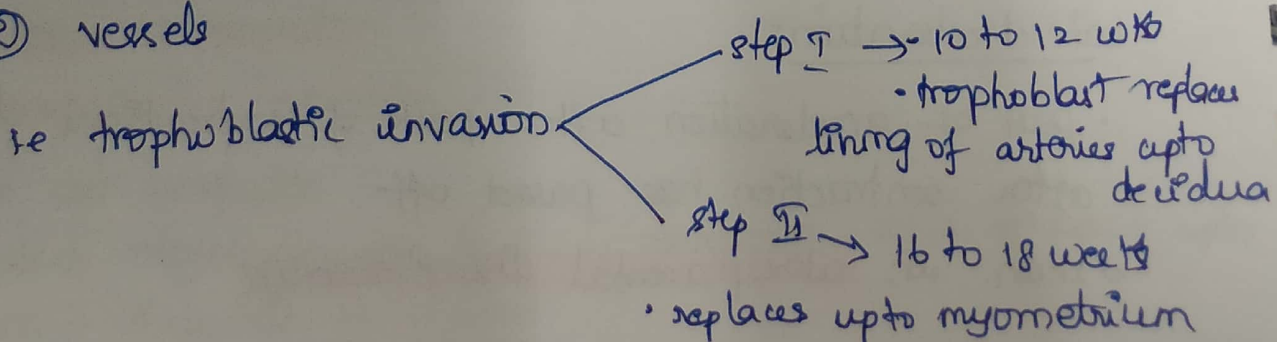 vessels
trophoblastic invasion
step I → 10 to 12 wks
• trophoblast replaces
lining of arteries upto
decidua
step II → 16 to 18 weeks
• replaces upto myometrium